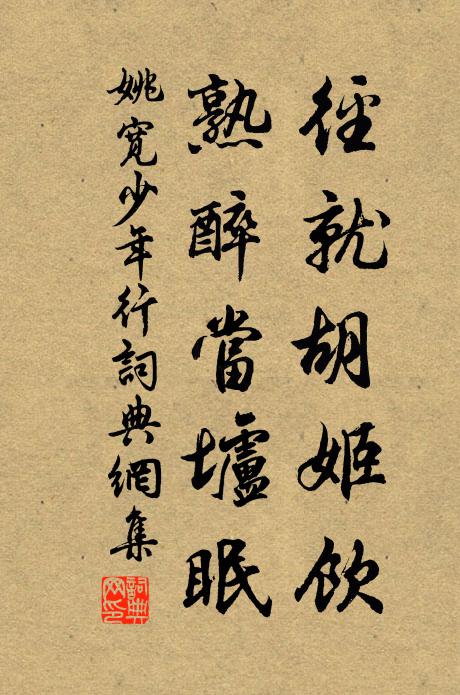 徑就胡姬飲
熟醉當壚眠
姚寬少年行詞典網集
詞典網印